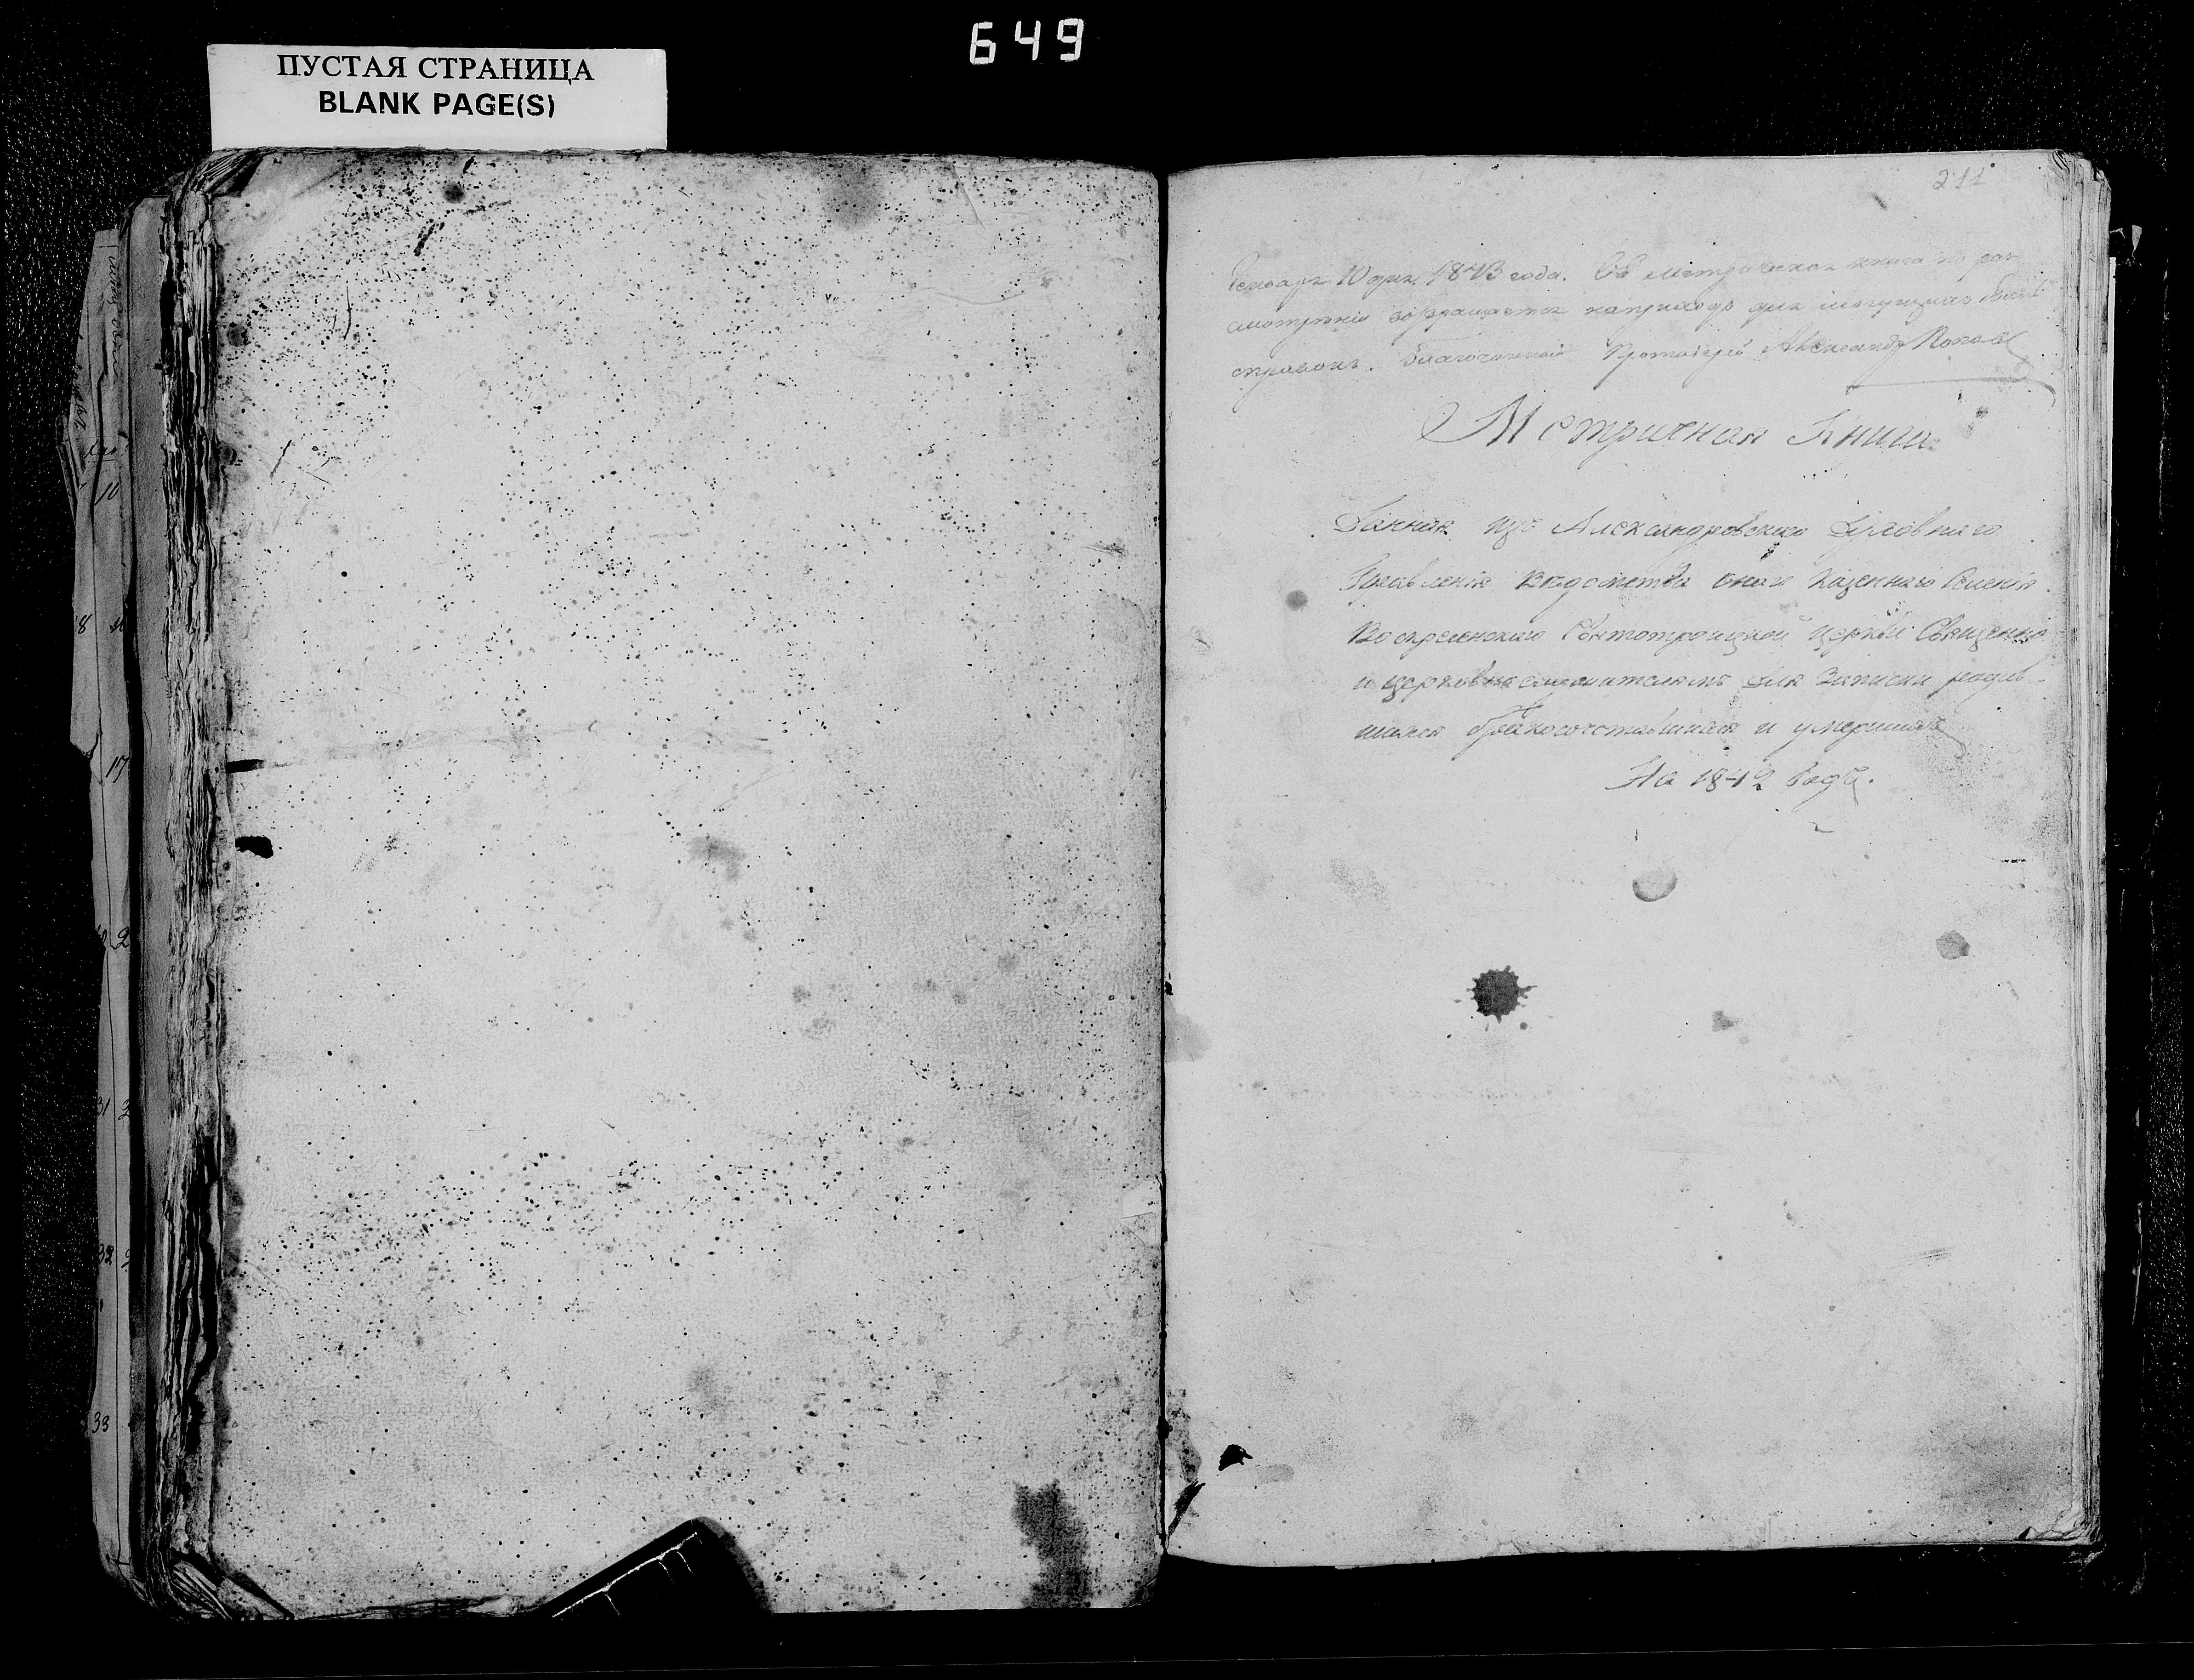 649
ПУСТАЯ СТРАНИЦА
BLANK PAGE(S)
211
Генваря 10 дня 1843 года. Сія метрическая книга по раз
смотреніи возвращается на приходъ для могущихъ быть
справокъ. Благочинный Протоіерей Александръ Поповъ
Метричная Книга
Данная изъ Александровскаго Духовнаго
Правленія ведомства онаго Казеннаго Селенія
Воскресенскаго Святотроицкой церкви Священно
и церковнослужителямъ для записки родив-
шихся бракосочетавшихся и умершихъ
На 1842 годъ.